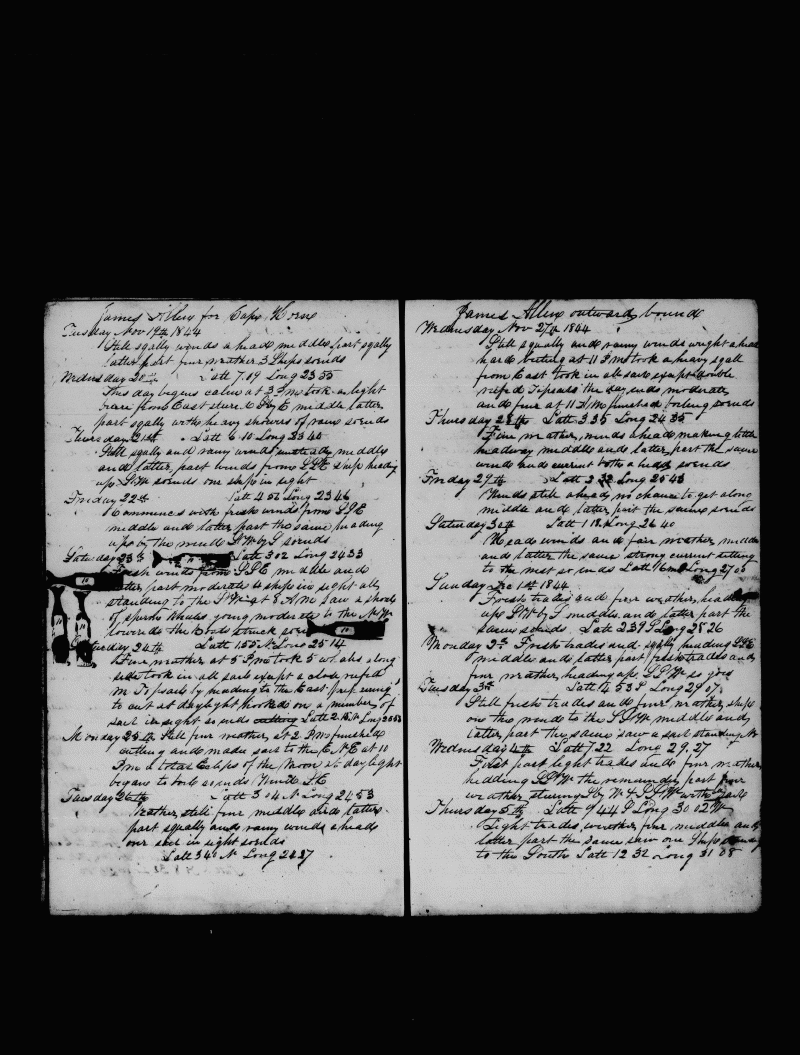 James Allen for Cape Horn
Tuesday Nov 19th 1844
Still sqally winds a head middle part sqally
latter part fine weather 3 Ships so ends
Wednesday 20th Latt 7.09 Long 23 55
This day begins calm at 3 PM took a light
from East steered S by E middle latter
part sqally with heavy showers of rain so ends
Thursday 21st Latt 6 10 Long 23 40
Still sqally and rainy winds middle
and latter part winds from SSE ship heading
up SW so ends one ship in sight
Friday 22th Latt 4 56 Long 23 46
Commences with fresh winds from SSE
middle and latter part the same heading
up by the wind SW by S so ends
Saturday 23th Latt 3 02 Long 24 33
Fresh winds from SSE middle and
latter part moderate 4 ships in sight all
standing to the SW at 8 AM saw a shoal
of sperm whales going moderate to the NW
lowered the boats struck so ends
24th Latt 1 55 N Long 25 14
Fine weather at 5 PM took 5 whales along
side took in all sail except a close reefed
M Topsail by heading to the East
to cut at daylight hooked on a number of
sail in sight so ends Latt 2 15 N Long 25 03
Monday 25th Still fine weather, at 2 PM finished
cutting and made sail to the ENE at 10
PM a total Eclips of the Moon at daylight
began to boil so ends Wind SE
Tuesday 26th Latt 3 04 N Long 24 53
Weather still fine middle and latter
part sqally and rainy winds a head
one sail in sight so ends
Latt 3 40 N Long 24 27
James Allen outward bound
Wednesday Nov 27th 1844
Still squally and rainy winds wright a head
hard beting at 11 PM took a heavy sqall
from East took in all sail except double
reefd Topsails the day ends moderate
and fine at 11 AM finished boiling so ends
Thursday 28th Latt 3 35 Long 24 35
Fine weather, winds ahead making little
headway middle and latter part the same
winds and current both a head so ends
Friday 29th Latt 3 22 Long 25 43
Winds still ahead, no chance to get along
middle and latter part the same so ends
Saturday 30th Latt 1 18 Long 26 40
Head winds and fair weather middle
and latter the same strong current setting
to the west so ends Latt 16 m S Long 27 05
Sunday Dec 1st 1844
Fresh trades and fine weather, heading
up SW by S middle and latter part the
same so ends Latt 2 39 S Long 28 26
Monday 2d Fresh trades and sqally heading SSE
middle and latter part fresh trades and
fine weather heading up SSW so goes
Tuesday 3d Latt 4 53 S Long 29 07
Still fresh trades and fine weather, ship
on the wind to the SSW middle and
latter part the same saw a sail standing N
Wednesday 4th Latt 7 22 Long 29.27
First part light trades and fine weather
hedding SSW the remainder part fine
weather, steering S by W & SSW with sail
Thursday 5th Latt 9/44 S Long 30 02 W
Light trades weather fine middle and
latter part the same saw one Ship
to the South Latt 12 32 Long 31 08